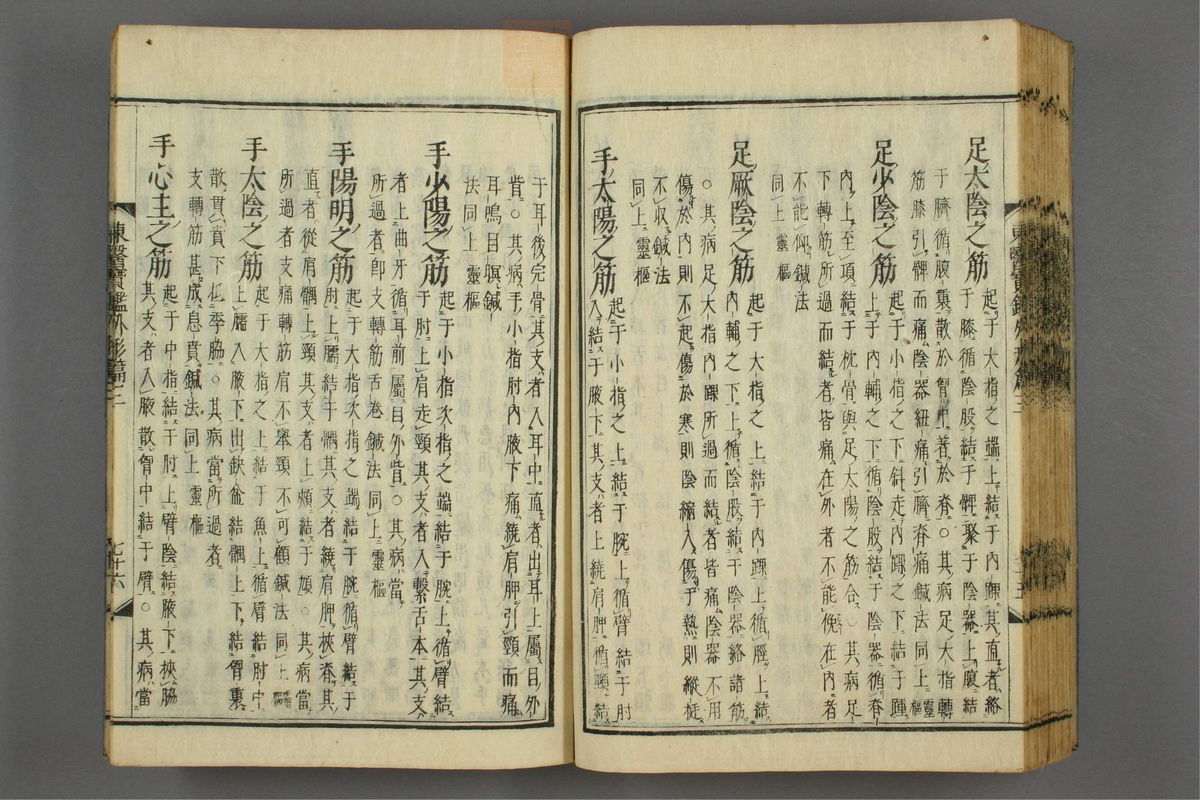 足太陰之筋 起于大指之端上結于内踝其直者絡
于膝循陰股結于髀聚于陰器上腹結
于臍循腹裏散於胷中著於脊○其病足大指轉
筋膝引髀而痛陰器紐痛引臍脊痛鍼法同上靈樞
足少陰之筋 起于小指之下斜走内踝之下結于踵
上于内輔之下循陰股結于陰器循脊
内上至項結于枕骨與足太陽之筋合○其病足
下轉筋所過而結者皆痛在外者不能俛在内者
不能仰鍼法
同上靈樞
足厥陰之筋 起于大指之上結于内踝上循脛上結
内輔之下上循陰股結于陰器絡諸筋
○其病足大指内踝所過而結者皆痛陰器不用
傷於内則不起傷於寒則陰縮入傷于熱則縱挺
不収鍼法
同上靈樞
手太陽之筋 起于小指之上結于腕上循臂結于肘
入結于腋下其支者上繞肩胛循頸結
于耳後完骨其支者入耳中直者出耳上屬目外
眥○其病手小指肘内腋下痛繞肩胛引頸而痛
耳鳴目瞑鍼
法同上靈樞
手少陽之筋 起于小指次指之端結于腕上循臂結
于肘上肩走頸其支者入繫舌本其支
者上曲牙循耳前屬目外眥○其病當
所過者卽支轉筋舌卷鍼法同上靈樞
手陽明之筋 起于大指次指之端結于腕循臂結于
肘上臑結于髃其支者繞肩胛挾脊其
直者從肩髃上頸其支者上頰結于頄○其病當
所過者支痛轉筋肩不擧頸不可顧鍼法同上靈樞
手太陰之筋 起于大指之上結于魚上循臂結肘中
上臑入腋下出缺盆結髃上下結胷裏
散貫賁下抵季脇○其病當所過者
支轉筋甚成息賁鍼法同上靈樞
手心主之筋 起于中指結于肘上臂陰結腋下挾脇
其支者入腋散胷中結于臂○其病當
東醫寶鑑外形篇二
七十六